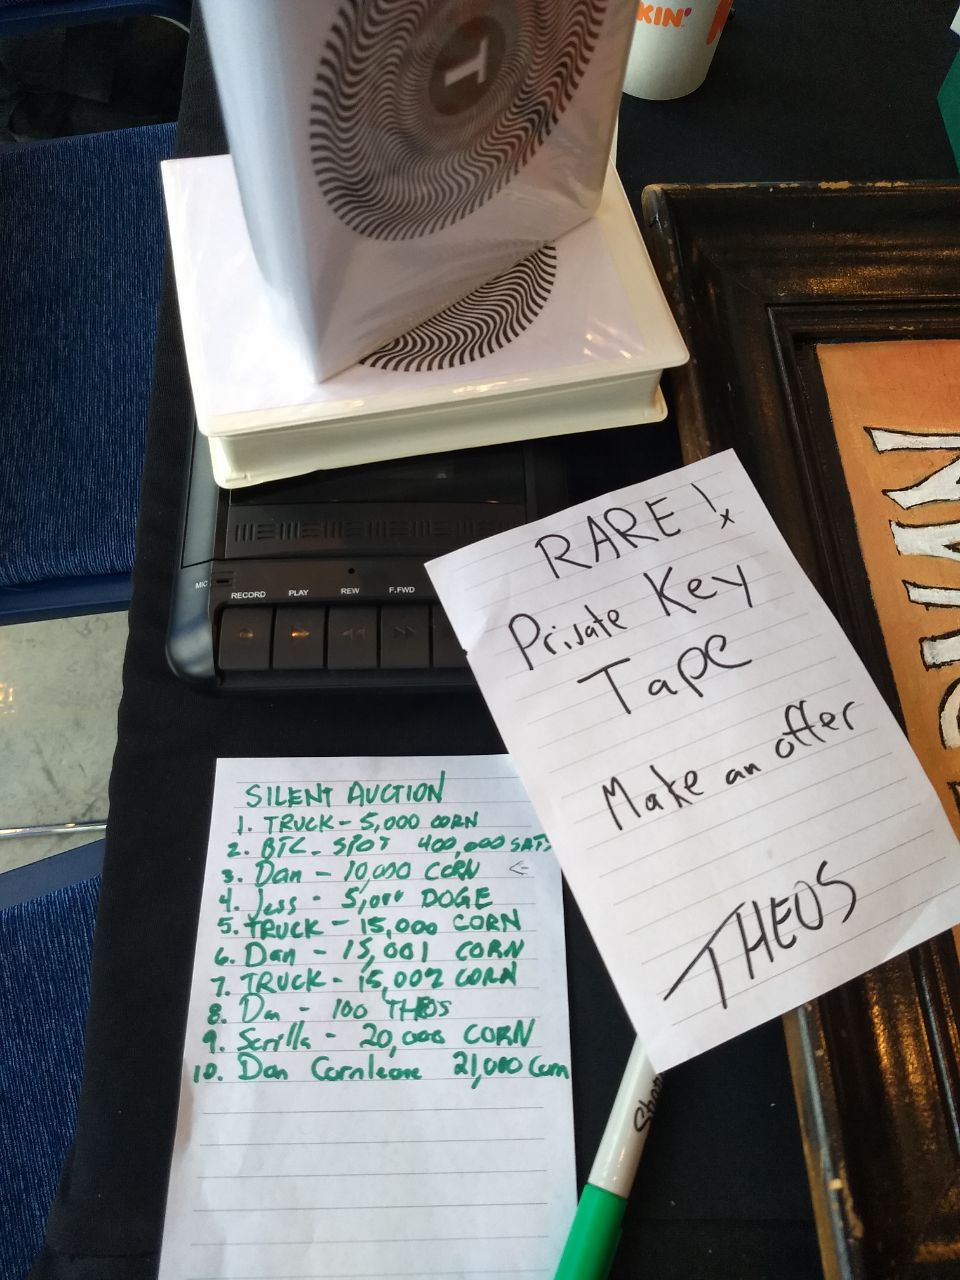 T
KIN'
RARE!
Private Key
Tape
Make an offer
THEOS
MIC
RECORD PLAY REW F.FWD
SILENT AUCTION
1. TRUCK - 5,000 CORN
2. BTC - SPOT 400,000 SATS
3. Dan - 10,000 CORN ←
4. Jess - 5,000 DOGE
5. TRUCK - 15,000 CORN
6. Dan - 15,001 CORN
7. TRUCK - 15,002 CORN
8. Dan - 100 THEOS
9. Scrilla - 20,000 CORN
10. Dan Cornleone 21,000 Corn